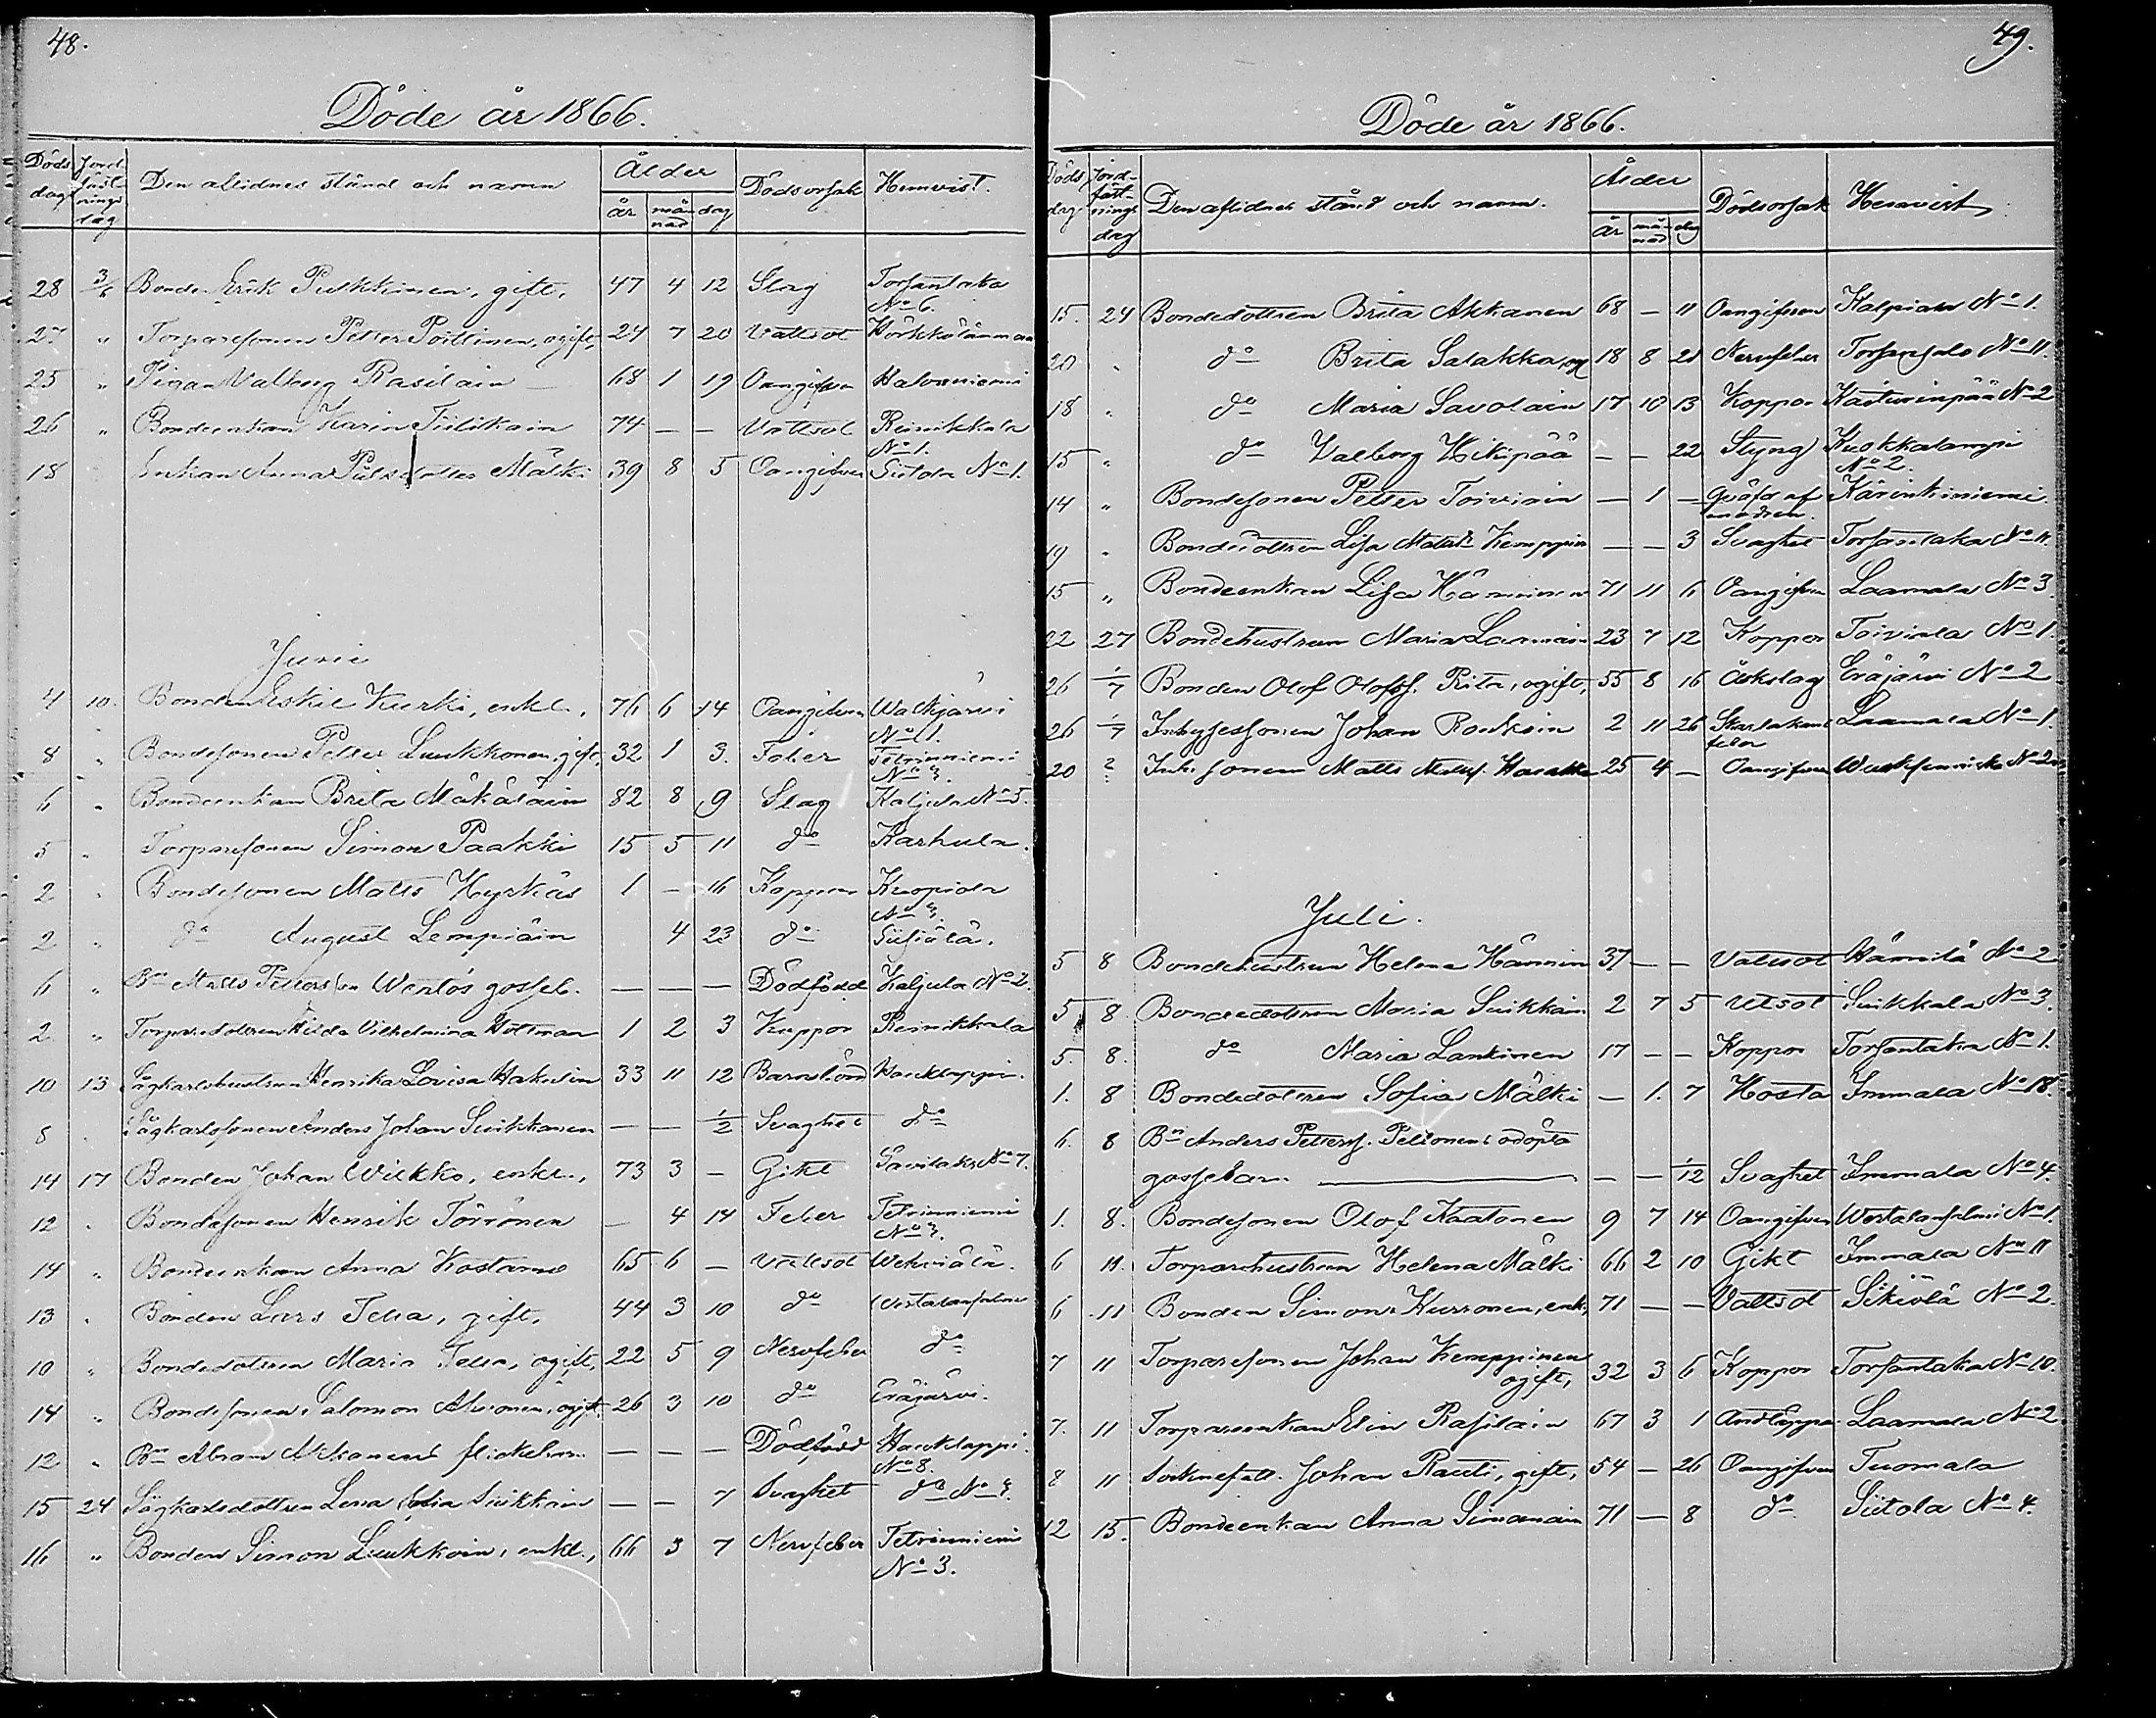 48.
Döde år 1866.
Döds dag | Jordfästnings dag | Den aflidnes stånd och namn | Ålder år månad dag | Dödsorsak | Hemvist.
28 3/6 Bonden Erik Pukkinen, gift, 47 4 12 Slag Torsantaka No 6.
27 " Torparesonen Petter Pöllinen, ogift, 24 7 20 Vattsot
25 " Pigan Valborg Rasilain — 68 1 19 Oangifven Haloniemi
26 " Bondeenkan Karin Tiilikain 74 — — Vattsot Reinikkala No 1.
18 Enkan Anna Mälki 39 8 5 Oangifven Siitola No 1.
Junii
4 10. Bonden Eskil Kurki, enkl., 76 6 14 Oangifven Walkjärvi No 1.
8 " Bondesonen Petter Luukkonen, gift, 32 1 3. Feber Tetriniemi No 3.
6 " Bondeenkan Brita Mäkäläin 82 8 9 Slag Kaljula No 5.
5 " Torparesonen Simon Paakki 15 5 11 do Karhula.
2 " Bondesonen Matts Hyrkäs 1 — 16 Koppor Kuopiala No 3.
2 " do August Lempiäin 4 23 do
6 " Bn Matts Pettersson Wentos gosseb. — — — Dödfödd Kaljula No 2.
2 " Torparedottren Hilda Vilhelmina Holtman 1 2 3 Koppor Reinikkala
10 13 Sågkarlshustrun Henrika Lovisa Hakulin 33 11 12 Barnsbörd Hauklappi.
8 " Sågkarlssonen Anders Johan Suikkanen — — 1/2 Svaghet do
14 17 Bonden Johan Wilkko, enkl., 73 3 — Gikt Savilaks No 7.
12 " Bondesonen Henrik Törrönen — 4 14 Feber Tetriniemi No 3.
14 " Bondeenkan Anna Kostamo 65 6 — Vattsot
13 " Bonden Lars Telia, gift, 44 3 10 do
10 " Bondedottren Maria Telia, ogift, 22 5 9 Nervfeber do
14 " Bondesonen Salomon ogift. 26 3 10 do Eräjärvi.
12 " Bn Abram Akkanens flickebarn — — — Dödfödd Hauklappi No 8.
15 24 Sågkarlsdottren Lena Sofia Suikkain — — 7 Svaghet do No 3.
16 " Bonden Simon Luukkoin, enkl., 66 3 7 Nervfeber Tetriniemi No 3.
49.
Döde år 1866.
Döds dag | Jordfästnings dag | Den aflidnes stånd och namn. | Ålder år månad dag | Dödsorsak | Hemvist,
15. 24 Bondedottren Brita Akkanen 68 — 11 Oangifven Kalpiala No 1.
20 " do Brita Salakka, og 18 8 21 Nervfeber No 11.
18 " do Maria Savolain 17 10 13 Koppor No 2
15 " do Valborg Hikipää — — 22 Styng Kuokkalampi No 2.
14 " Bondesonen Petter Toiviain — 1 — Qväfd af modren. Kärinkiniemi.
19 " Bondedottren Lisa Kemppin — — 3 Svaghet Torsantaka No 11.
15 " Bondeenkan Lisa Hänninen 71 11 6 Oangifven Laamala No 3.
22 27 Bondehustrun Maria Laamain 23 7 12 Koppor Toiviala No 1.
26 1/7 Bonden Olof Olofss. Rita, ogift, 55 8 16 Åskslag Eräjärvi No 2
26 1/7 Inhysessonen Johan Ronkoin 2 11 26 Skarlakans feber Laamala No 1.
20 2 Inh. sonen Matts 25 4 — Oangifven
Juli.
5 8 Bondehustrun Helena Hännin 37 — — Vattsot Hämilä No 2
5 8 Bondedottren Maria Suikkain 2 7 5 Utsot Suikkala No 3.
5. 8. do Maria Lankinen 17 — — Koppor Torsantaka No 1.
1. 8 Bondedottren Sofia Mälki — 1. 7 Hosta Immala No 18.
6. 8 Bn Anders Petterss. Peltonens odöpta
gossebarn. — — 1/12 Svaghet Immala No 4.
1. 8. Bondesonen Olof Kaatonen 9 7 14 Oangifven No 1.
6 11. Torparehustrun Helena Mälki 66 2 10 Gikt Immala No 11
6 11 Bonden Simon Kurronen, enk, 71 — — Vattsot Sikiölä No 2.
7 11 Torparesonen Johan Kemppinen ogift, 32 3 6 Koppor Torsantaka No 10.
7. 11 Torpareenkan Elin Rasilain 67 3 1 Andtäppa Laamala No 2
8 11 Johan Rauti, gift, 54 — 26 Oangifven Tuomala
12 15. Bondeenkan Anna Simanain 71 — 8 do Siitola No 4.